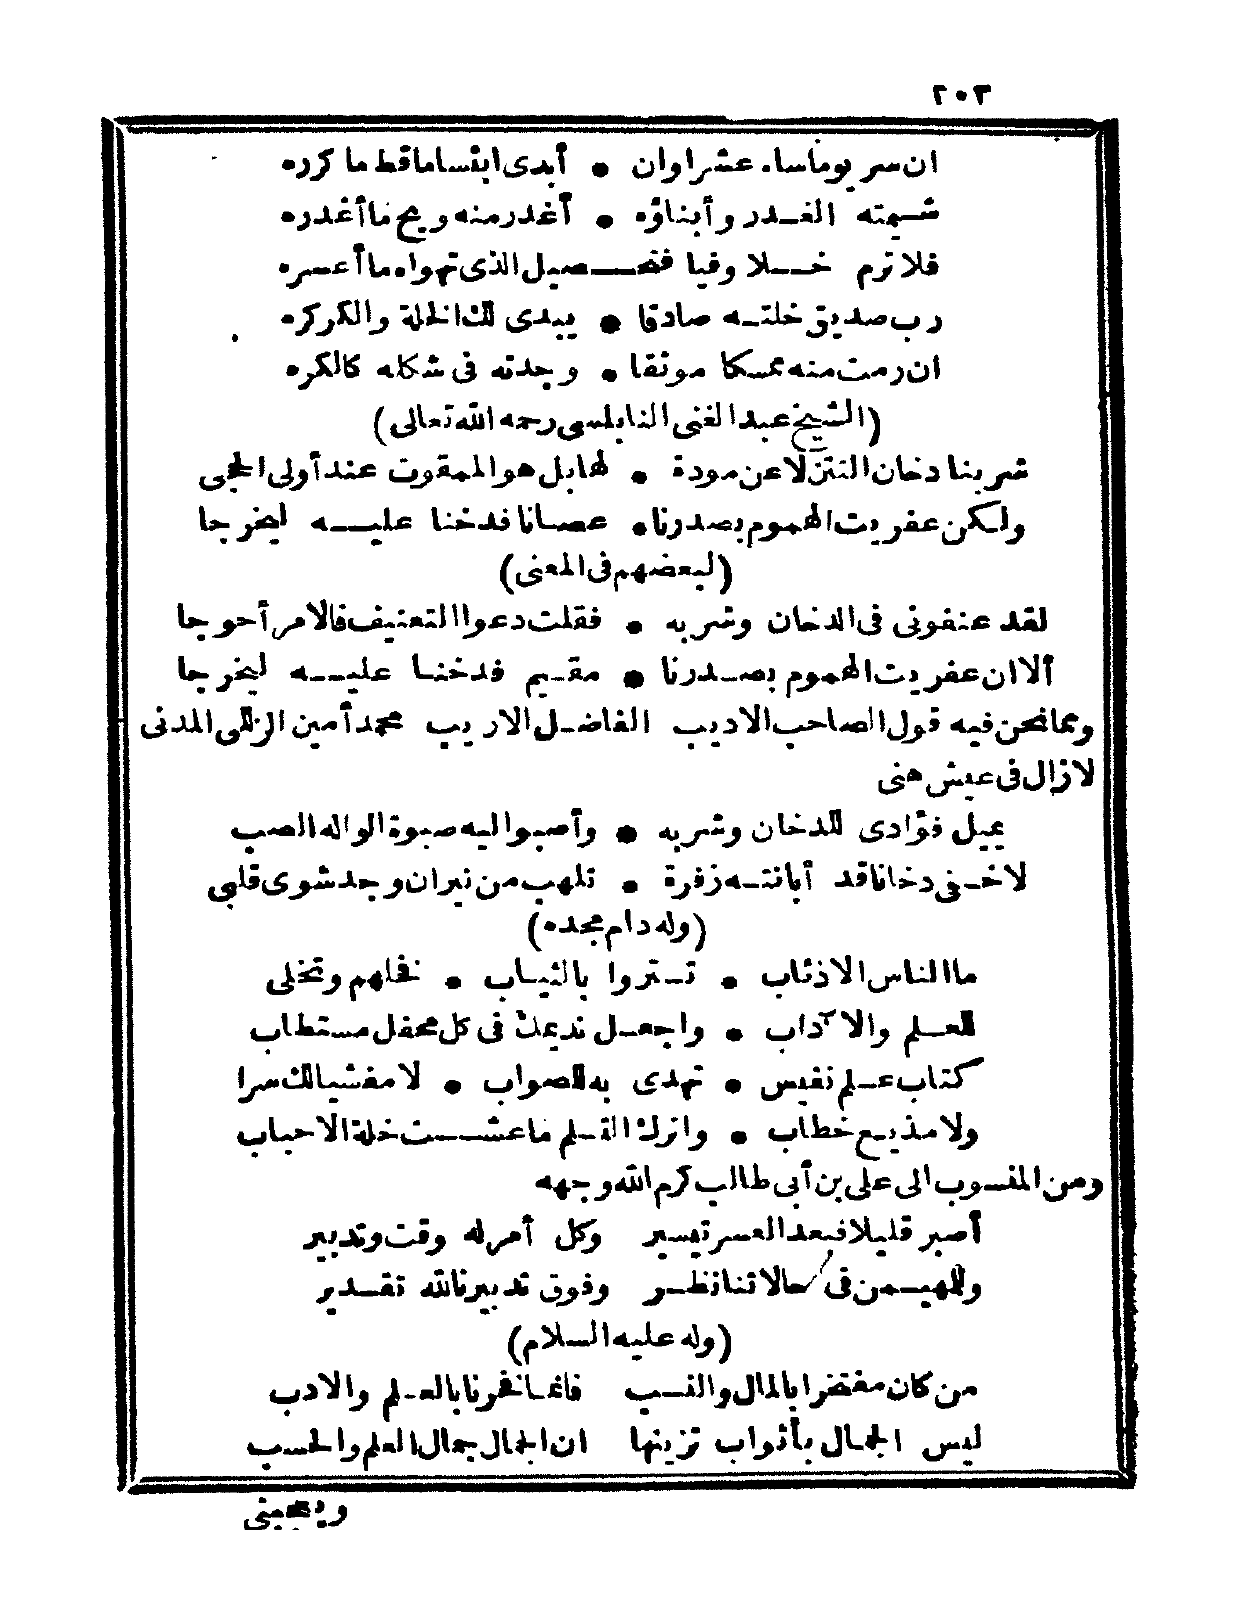 ٢٠٣
ان سر يوما ساء عشرا وان • أبدى ابتساما قط ما كرره
شيمته الغدر وأبناؤه • أغدر منه ويح ما أغدره
فلا ترم خلا وفيا فتحصيل الذى تهواه ما أعسره
رب صديق خلته صادقا • يبدى لك الخلة والكركره
ان رمت منه ممسكا موثقا • وجدته فى شكله كالكره
(الشيخ عبد الغنى النابلسى رحمه الله تعالى)
شربنا دخان التتن لا عن مودة • لها بل هو الممقوت عند أولى الحجى
ولكن عفريت الهموم بصدرنا • عصانا فدخنا عليه ليخرجا
(لبعضهم فى المعنى)
لقد عنفونى فى الدخان وشربه • فقلت دعوا التعنيف فالامر أحوجا
ألا ان عفريت الهموم بصدرنا • مقيم فدخنا عليه ليخرجا
ومما نحن فيه قول الصاحب الاديب الفاضل الاريب محمد أمين الزللى المدنى
لا زال فى عيش هنى
يميل فؤادى للدخان وشربه • وأصبوا ليه صبوة الواله الصب
لاخفى دخانا قد أبانته زفرة • تلهب من نيران وجد شوى قلبى
(وله دام مجده)
ما الناس الا ذئاب • تستروا بالثياب • فخلهم وتخلى
للعلم والآداب • واجعل نديمك فى كل محفل مستطاب
كتاب علم نفيس • تهدى به للصواب • لا مفشيا لك سرا
ولا مذيع خطاب • واترك القلم ما عشت خلة الاحباب
ومن المنسوب الى على بن أبى طالب كرم الله وجهه
أصبر قليلا فبعد العسر تيسير وكل أمر له وقت وتدبير
وللمهيمن فى حالاتنا نظر وفوق تدبيرنا لله تقدير
(وله عليه السلام)
من كان مفتخرا بالمال والنسب فانما فخرنا بالعلم والادب
ليس الجمال بأثواب تزينها ان الجمال جمال العلم والحسب
ويعجبنى